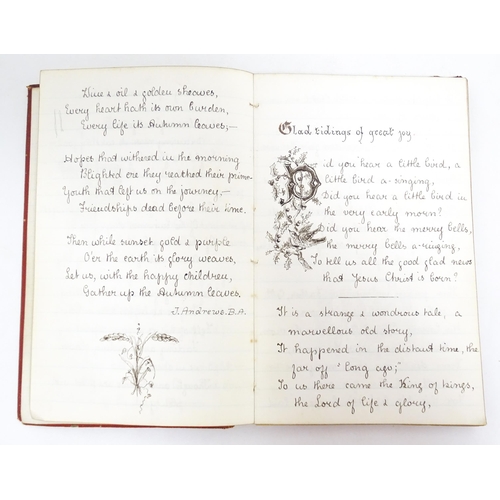 Wine & oil & golden sheaves,
Every heart hath its own burden,
Every life its Autumn leaves;—
Hopes that withered in the morning
Blighted ere they reached their prime
Youth that left us on the journey,—
Friendships dead before their time.
Then while sunset gold & purple
O'er the earth its glory weaves,
Let us, with the happy children,
Gather up the Autumn leaves.
J. Andrews. B.A.
Glad tidings of great joy.
Did you hear a little bird, a
little bird a-singing,
Did you hear a little bird in
the very early morn?
Did you hear the merry bells,
the merry bells a-ringing,
To tell us all the good glad news
that Jesus Christ is born?
It is a strange & wondrous tale, a
marvellous old story,
It happened in the distant time, the
far off "long ago;"
To us there came the King of kings,
the Lord of life & glory,